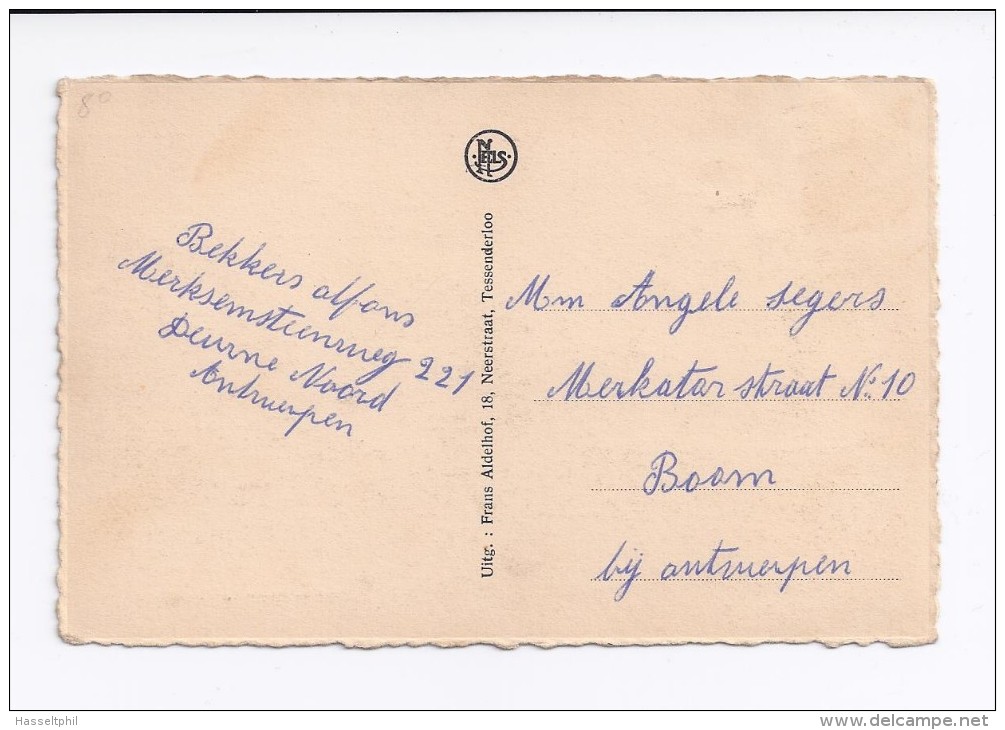 80
NELS
Bekkers alfons
Merksemsteenweg 221
Deurne Noord
Antwerpen
Uitg. : Frans Aldelhof, 18, Neerstraat, Tessenderloo
Mm Angele segers
Merkatorstraat No 10
Boom
bij antwerpen
Hasseltphil
www.delcampe.net